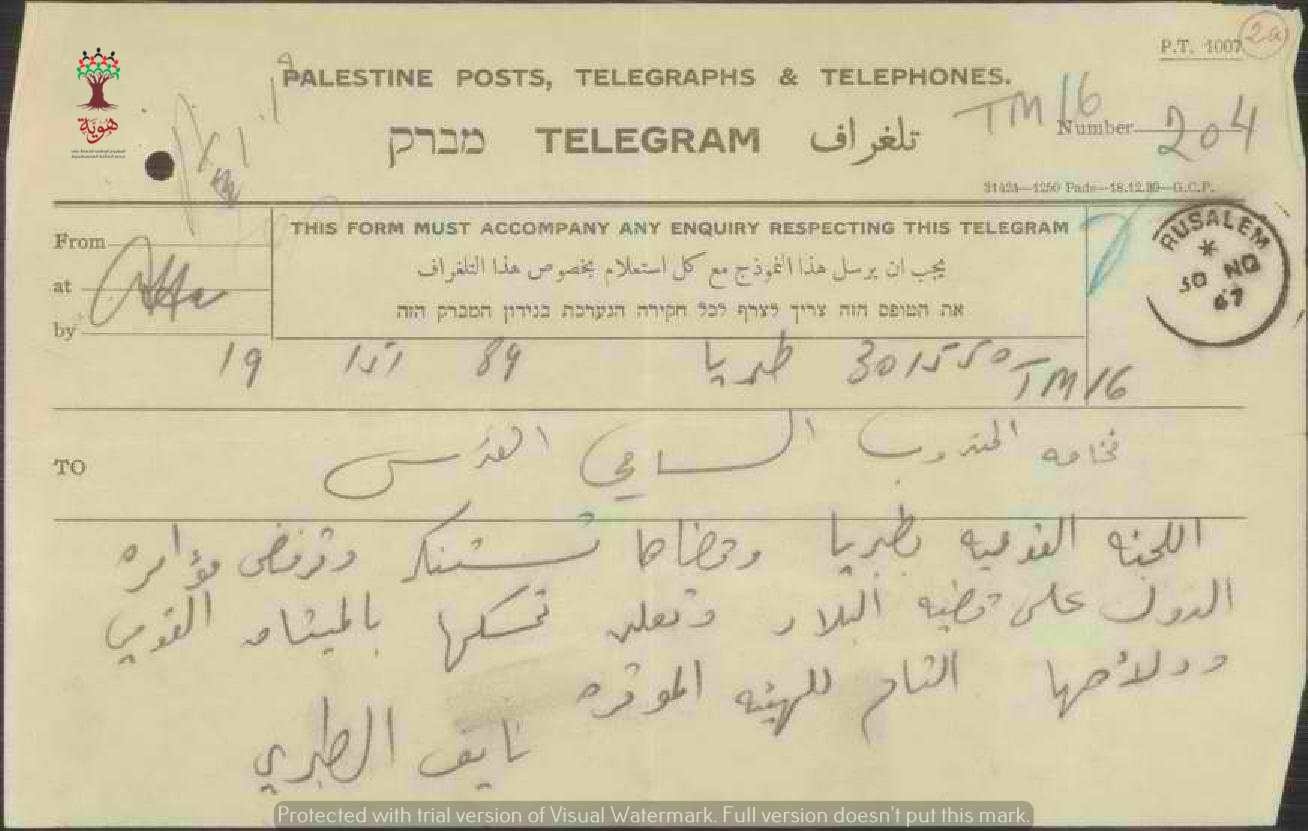 P.T. 1007
2a
PALESTINE POSTS, TELEGRAPHS & TELEPHONES.
TM16
מברק TELEGRAM تلغراف
Number 204
31424—1250 Pads—18.12.39—G.C.P.
هوية
From
at
by
THIS FORM MUST ACCOMPANY ANY ENQUIRY RESPECTING THIS TELEGRAM
يجب ان يرسل هذا النموذج مع كل استعلام بخصوص هذا التلغراف
את הטופס הזה צריך לצרף לכל חקירה הנערכת בנידון המברק הזה
RUSALEM
30 NO
47
TM16 301550 طبريا 89 1521 19
TO
فخامه المندوب السامي القدس
اللجنه القوميه بطبريا وقضاها تستنكر وترفض مؤامره
الدول على قضيه البلاد وتعلن تمسكها بالميثاق القومي
وولائها التام للهيئه الموقره
نايف الطبري
Protected with trial version of Visual Watermark. Full version doesn't put this mark.